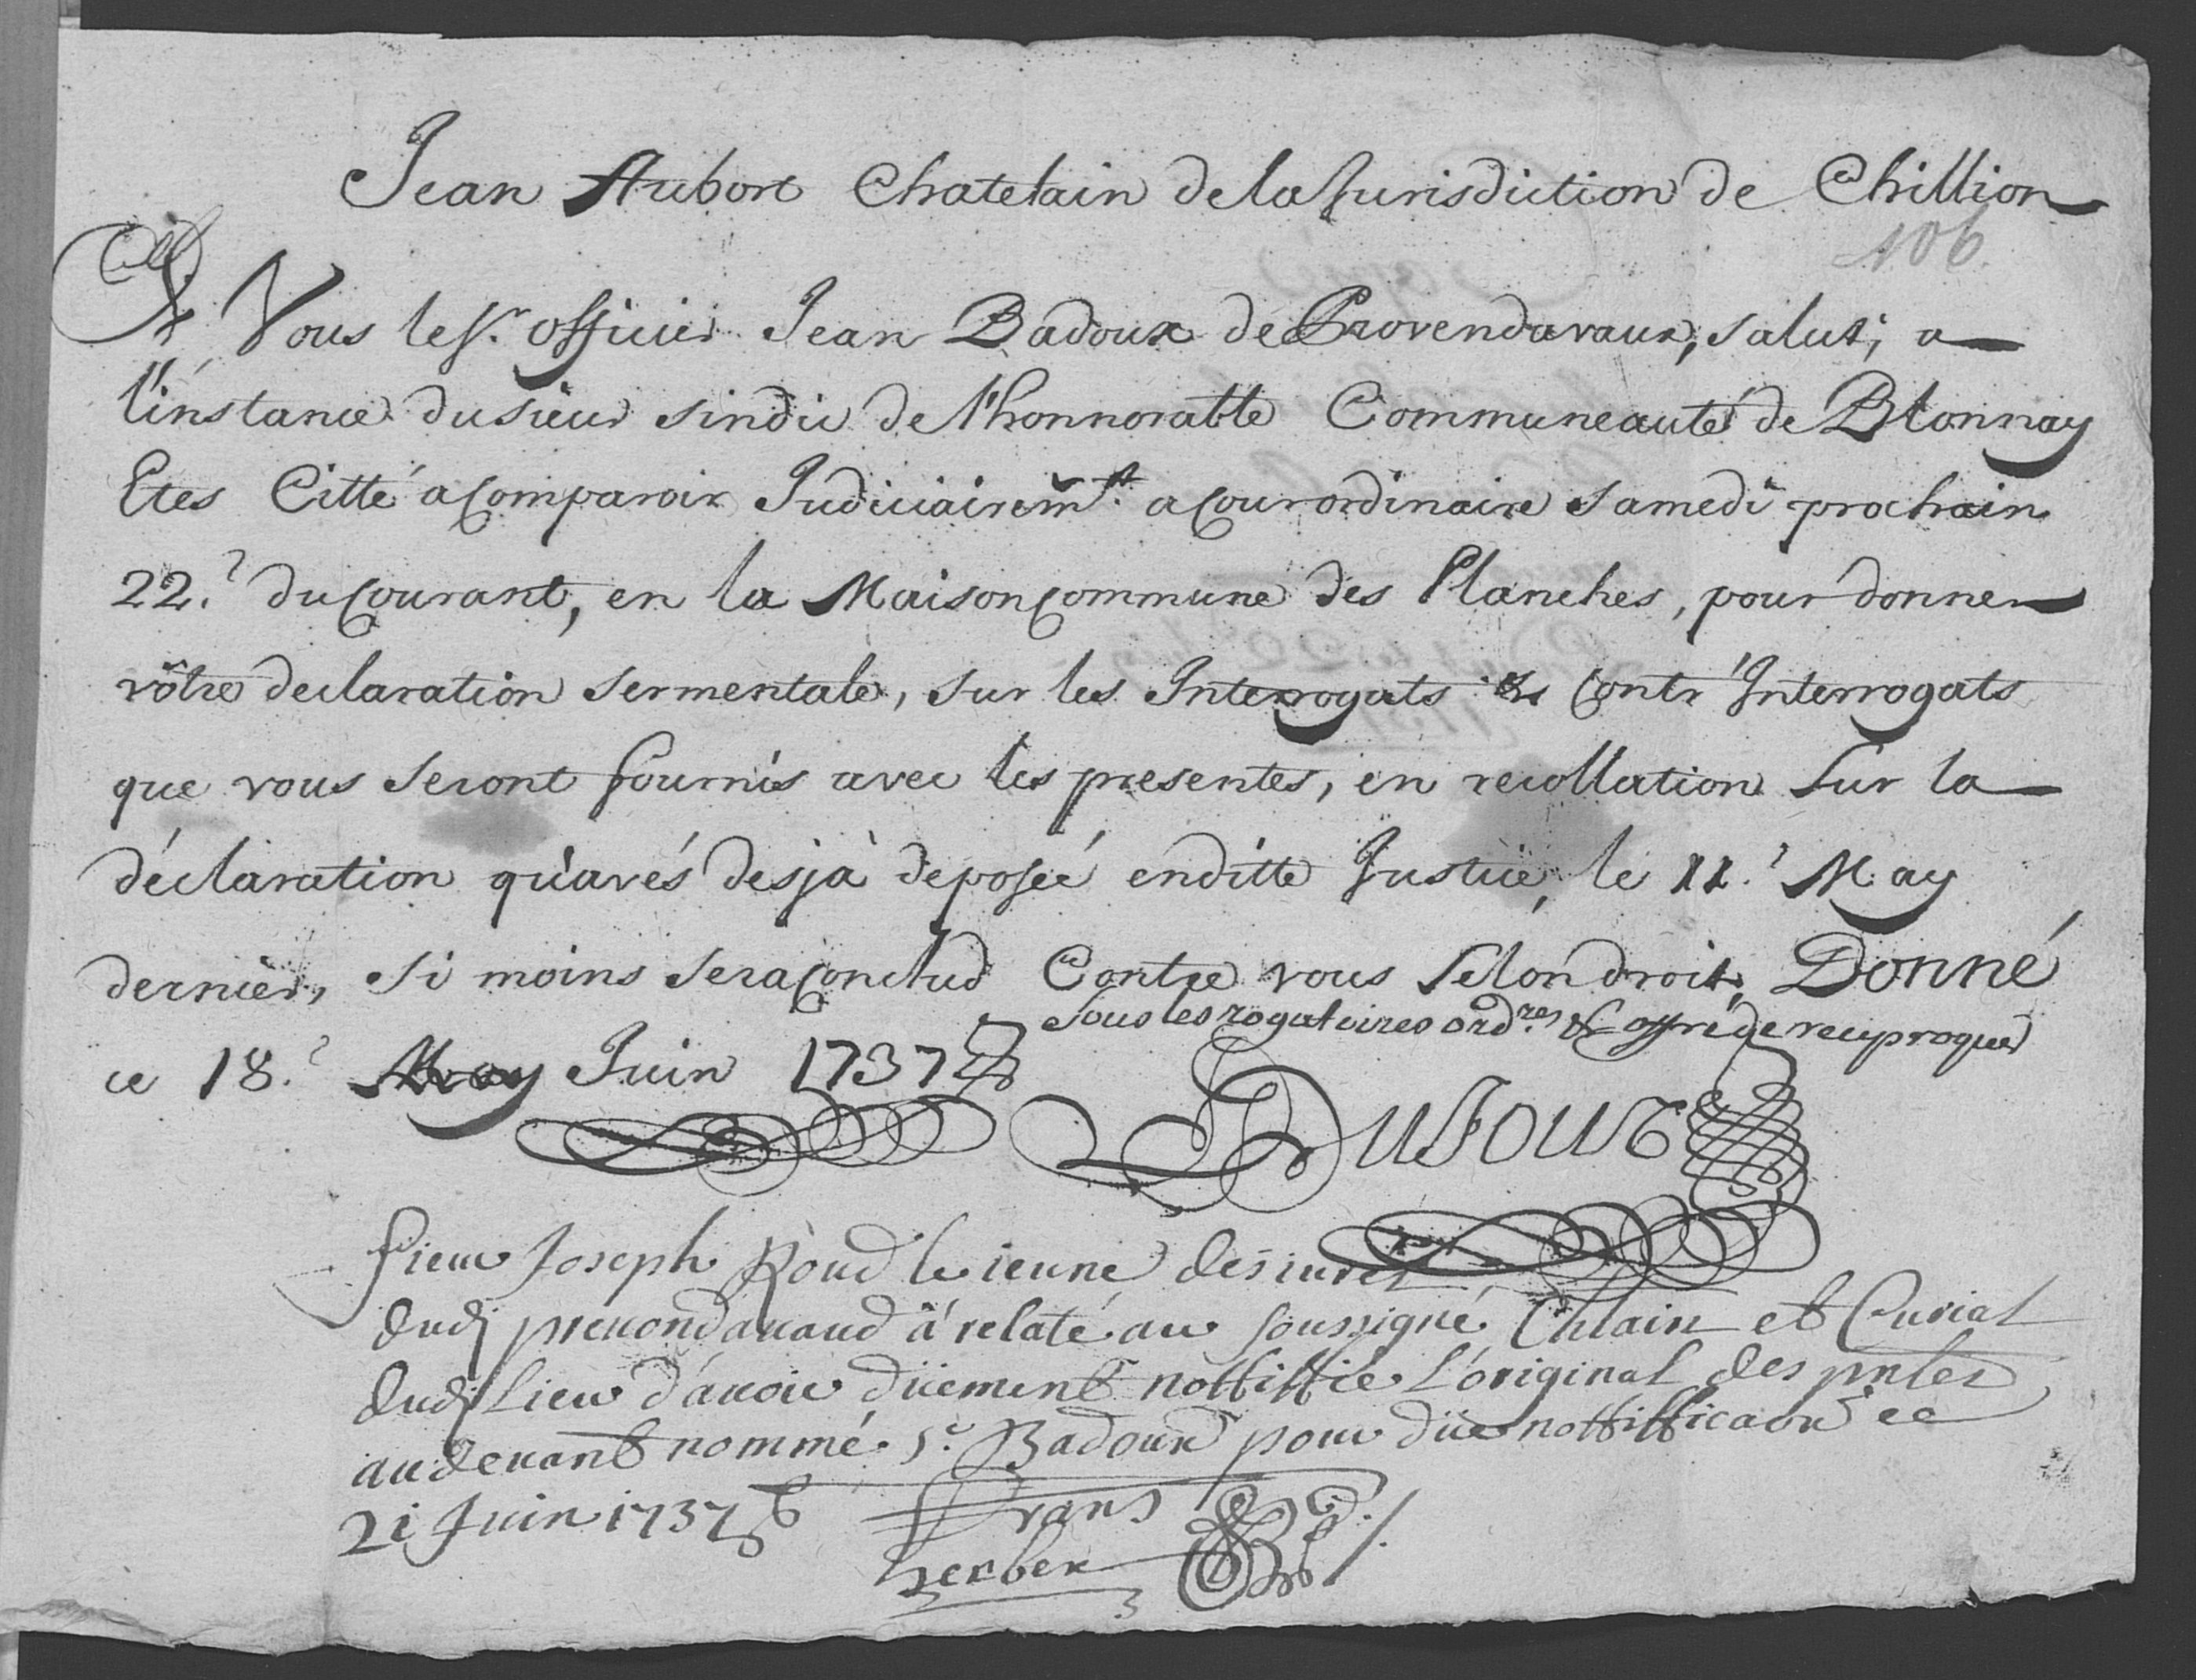 Jean Aubort Chatelain de la Jurisdiction de Chillion
106
A Vous le Sr. Officier Jean Badoux de Crovendavaux, salut; a
l'instance du sieur sindic de l'honnorable Communeauté de Blonnay
Etes Citté a Comparoir Judiciairemt. a Cour ordinaire samedi prochain
22.e du Courant, en la Maison Commune des Planches, pour donner
vôtre declaration sermentale, sur les Interrogats & Contr'Interrogats
que vous seront fournis avec les presentes, en recollation sur la
déclaration qu'avés desja deposée enditte Justice, le 11.e May
dernier, si moins sera Conclud Contre vous selon droit, Donné
sous les rogatoires ordres & offre de reciproque
ce 18.e May Juin 1737
Dufour
sieur Joseph Roud le jeune des jures
dudt prevondavaud à relaté au soussigné Chlain et Curial
dudt Lieu d'avoir düement nottiffié L'original des pntes
au devant nommé Sr. Badoux pour düe nottifficaon ce
21 Juin 1737
Frans
herber